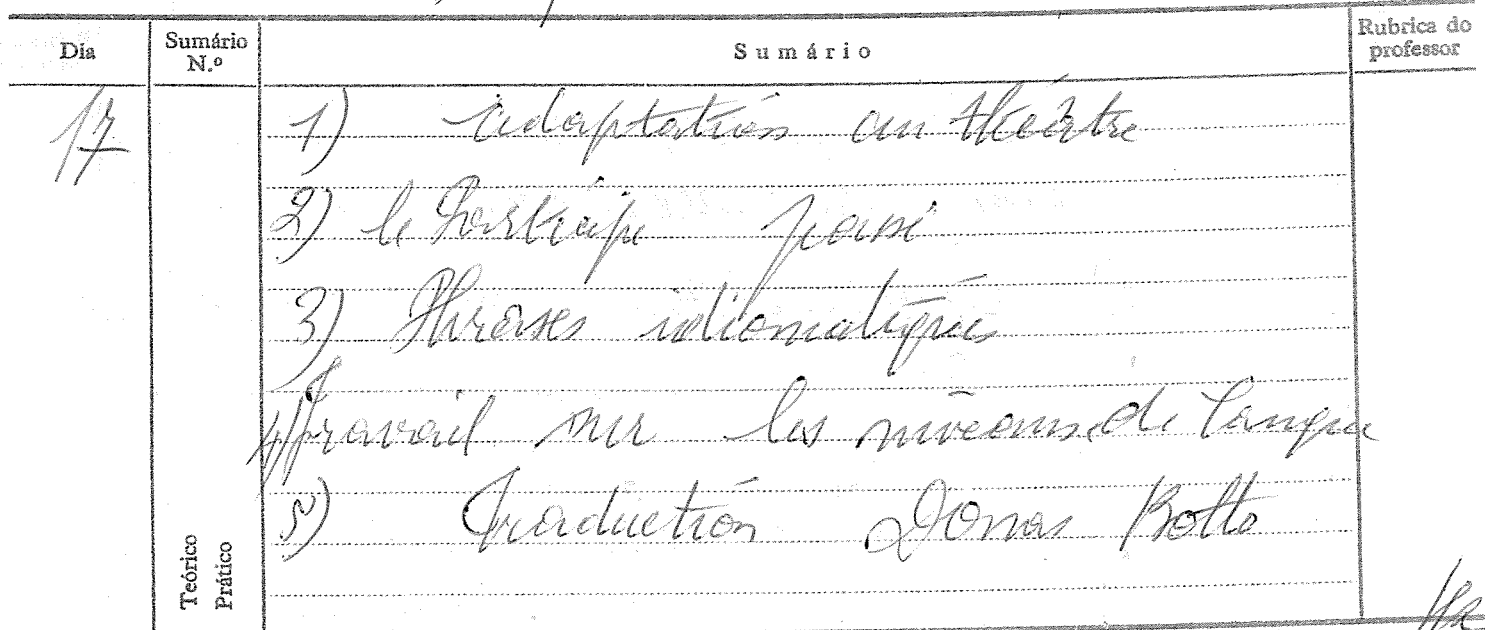 Dia
Sumário N.º
Sumário
Rubrica do professor
17
1) adaptation au théâtre
2) le Participe passé
3) Phrases idiomatiques
4) Travail sur les niveaux de langue
5) Traduction Botto
Teórico
Prático